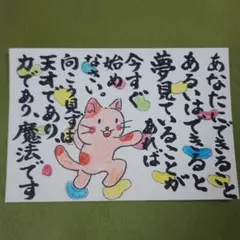 あなたにできること
あるいはできると
夢見ていることが
あれば
今すぐ
始め
なさい。
向こう見ずは
天才であり
力であり、魔法です